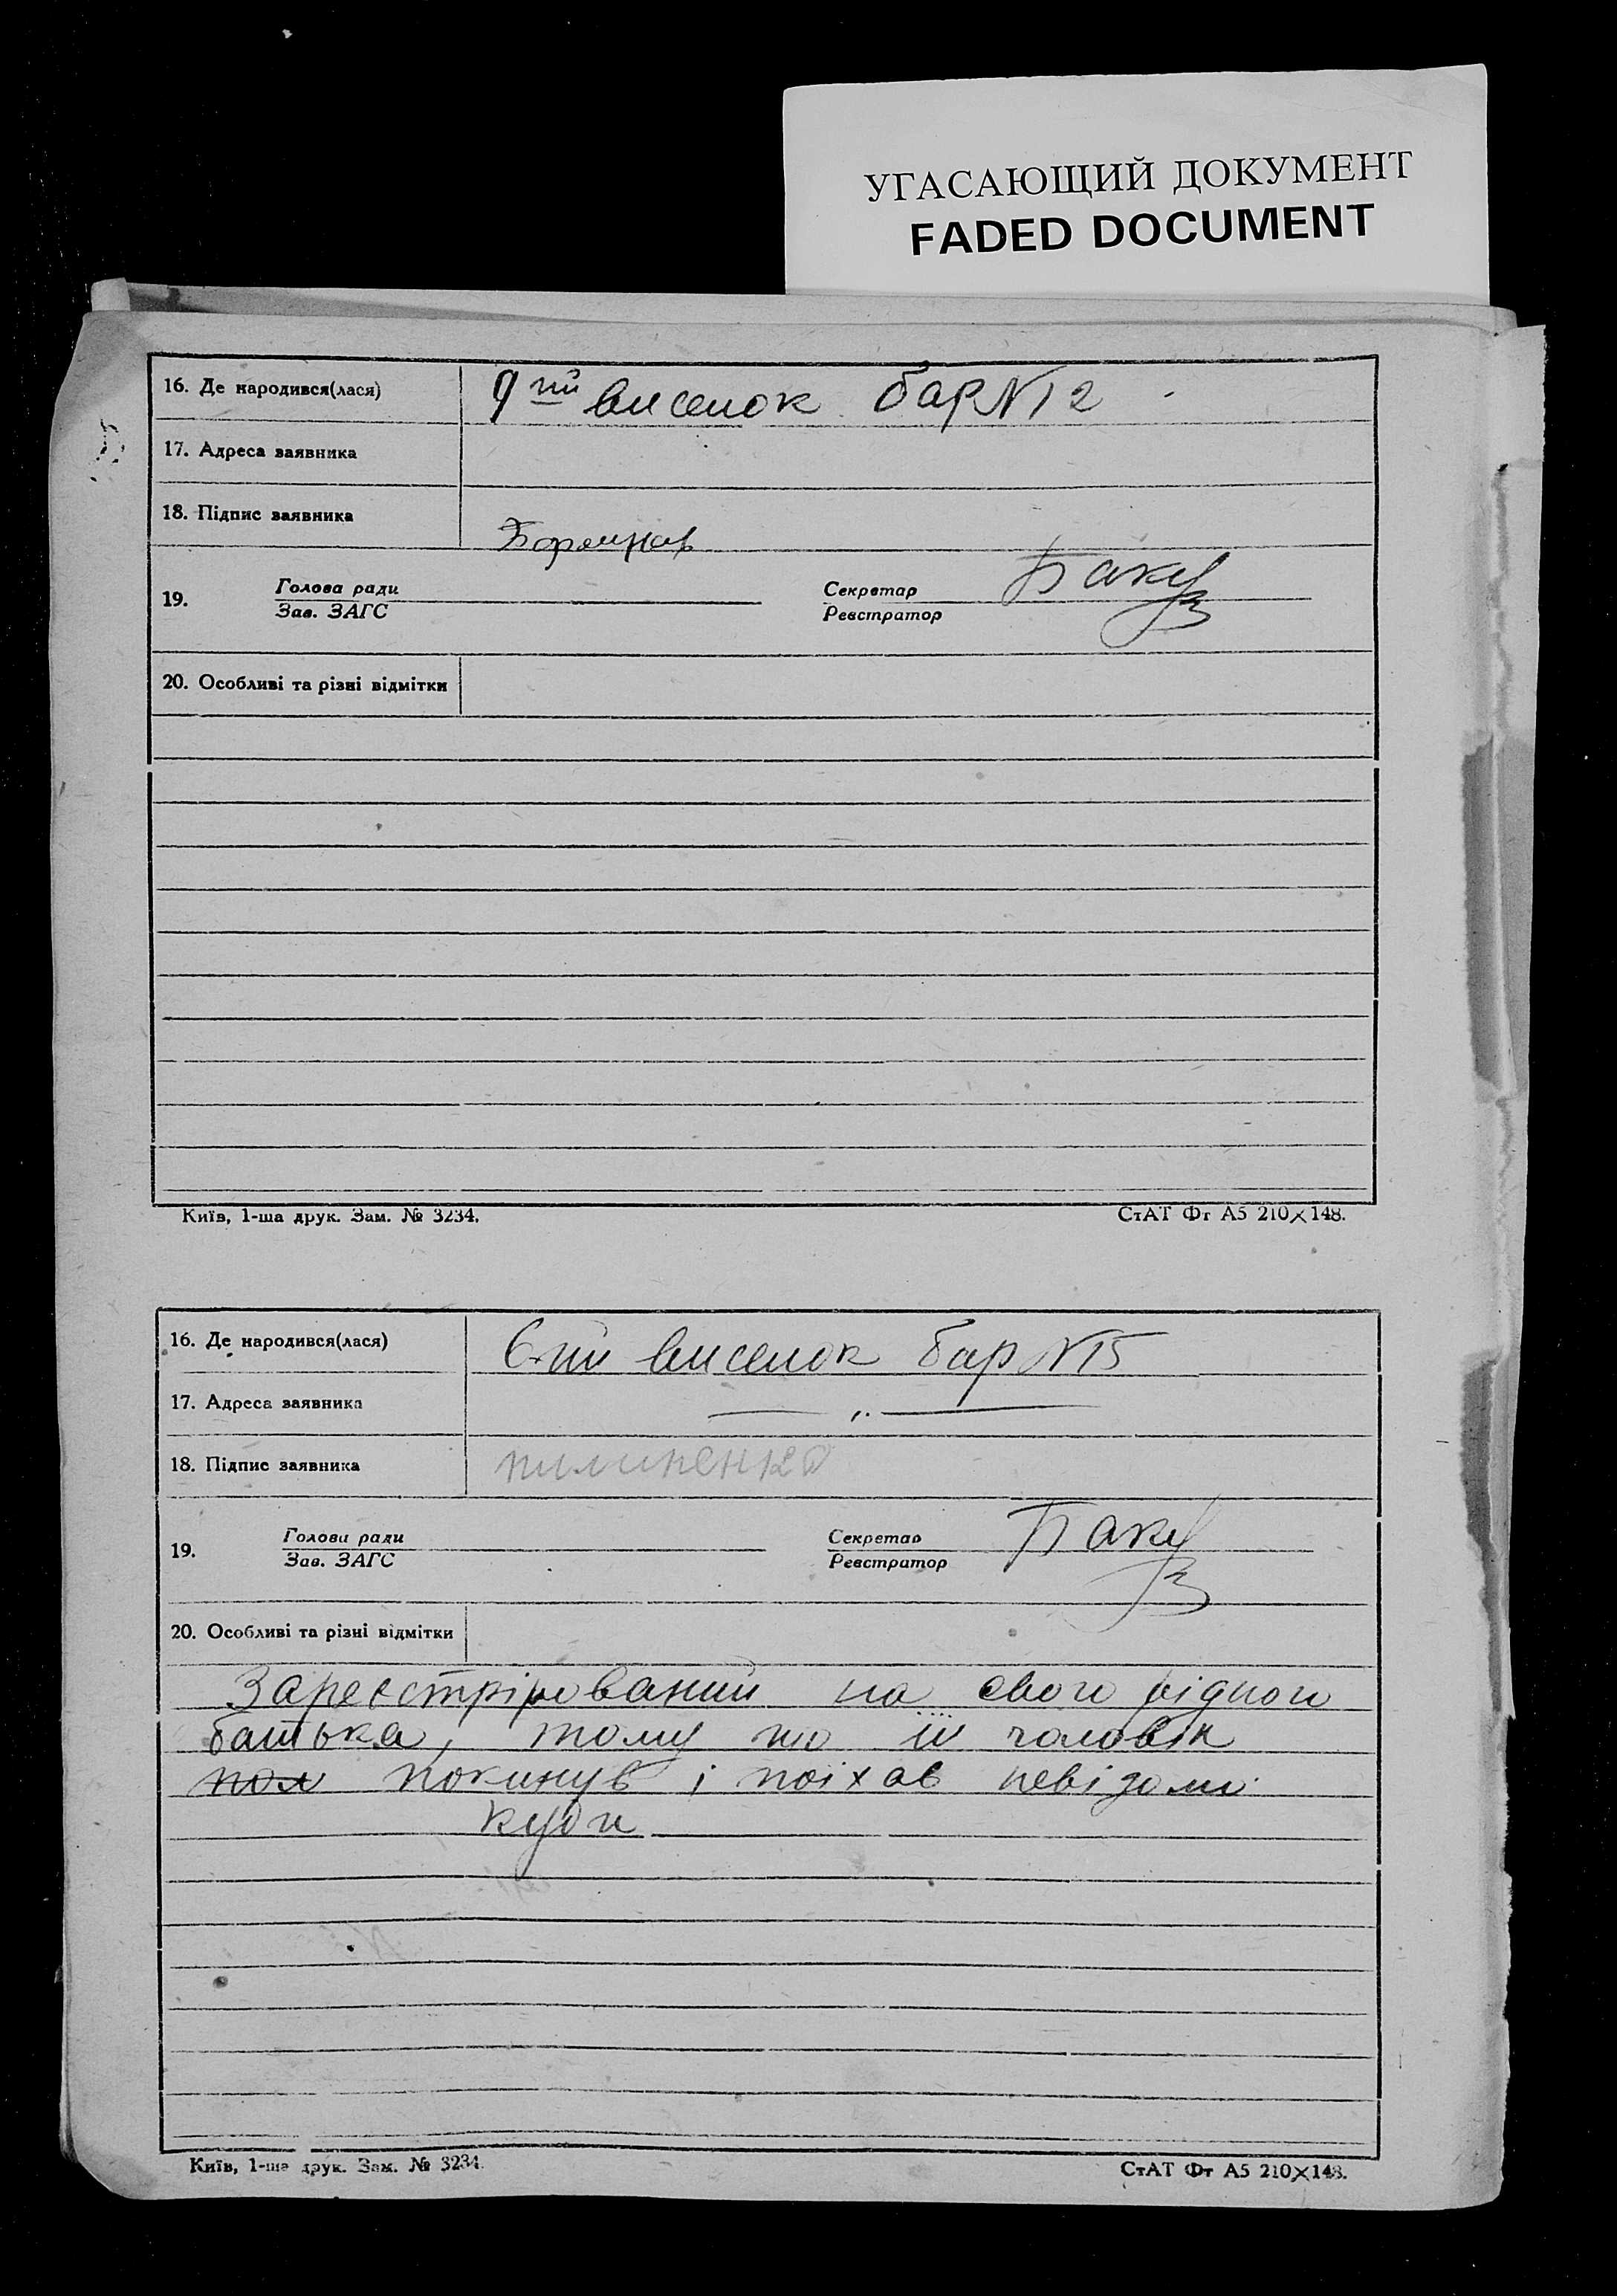 УГАСАЮЩИЙ ДОКУМЕНТ
FADED DOCUMENT
16. Де народився(лася) 9ий виселок бар N12
17. Адреса заявника
18. Підпис заявника
19. Голова ради Секретар
Зав. ЗАГС Реєстратор
20. Особливі та різні відмітки
Київ, 1-ша друк. Зам. № 3234. СтАТ Фт А5 210×148.
16. Де народився(лася) 6-ий виселок бар N15
17. Адреса заявника — „ —
18. Підпис заявника
19. Голова ради Секретар
Зав. ЗАГС Реєстратор
20. Особливі та різні відмітки
Зареєстрірований на свого рідного
батька, тому що її чоловік
пол покинув і поїхав невідомо
куди
Київ, 1-ша друк. Зам. № 3234. СтАТ Фт А5 210×148.